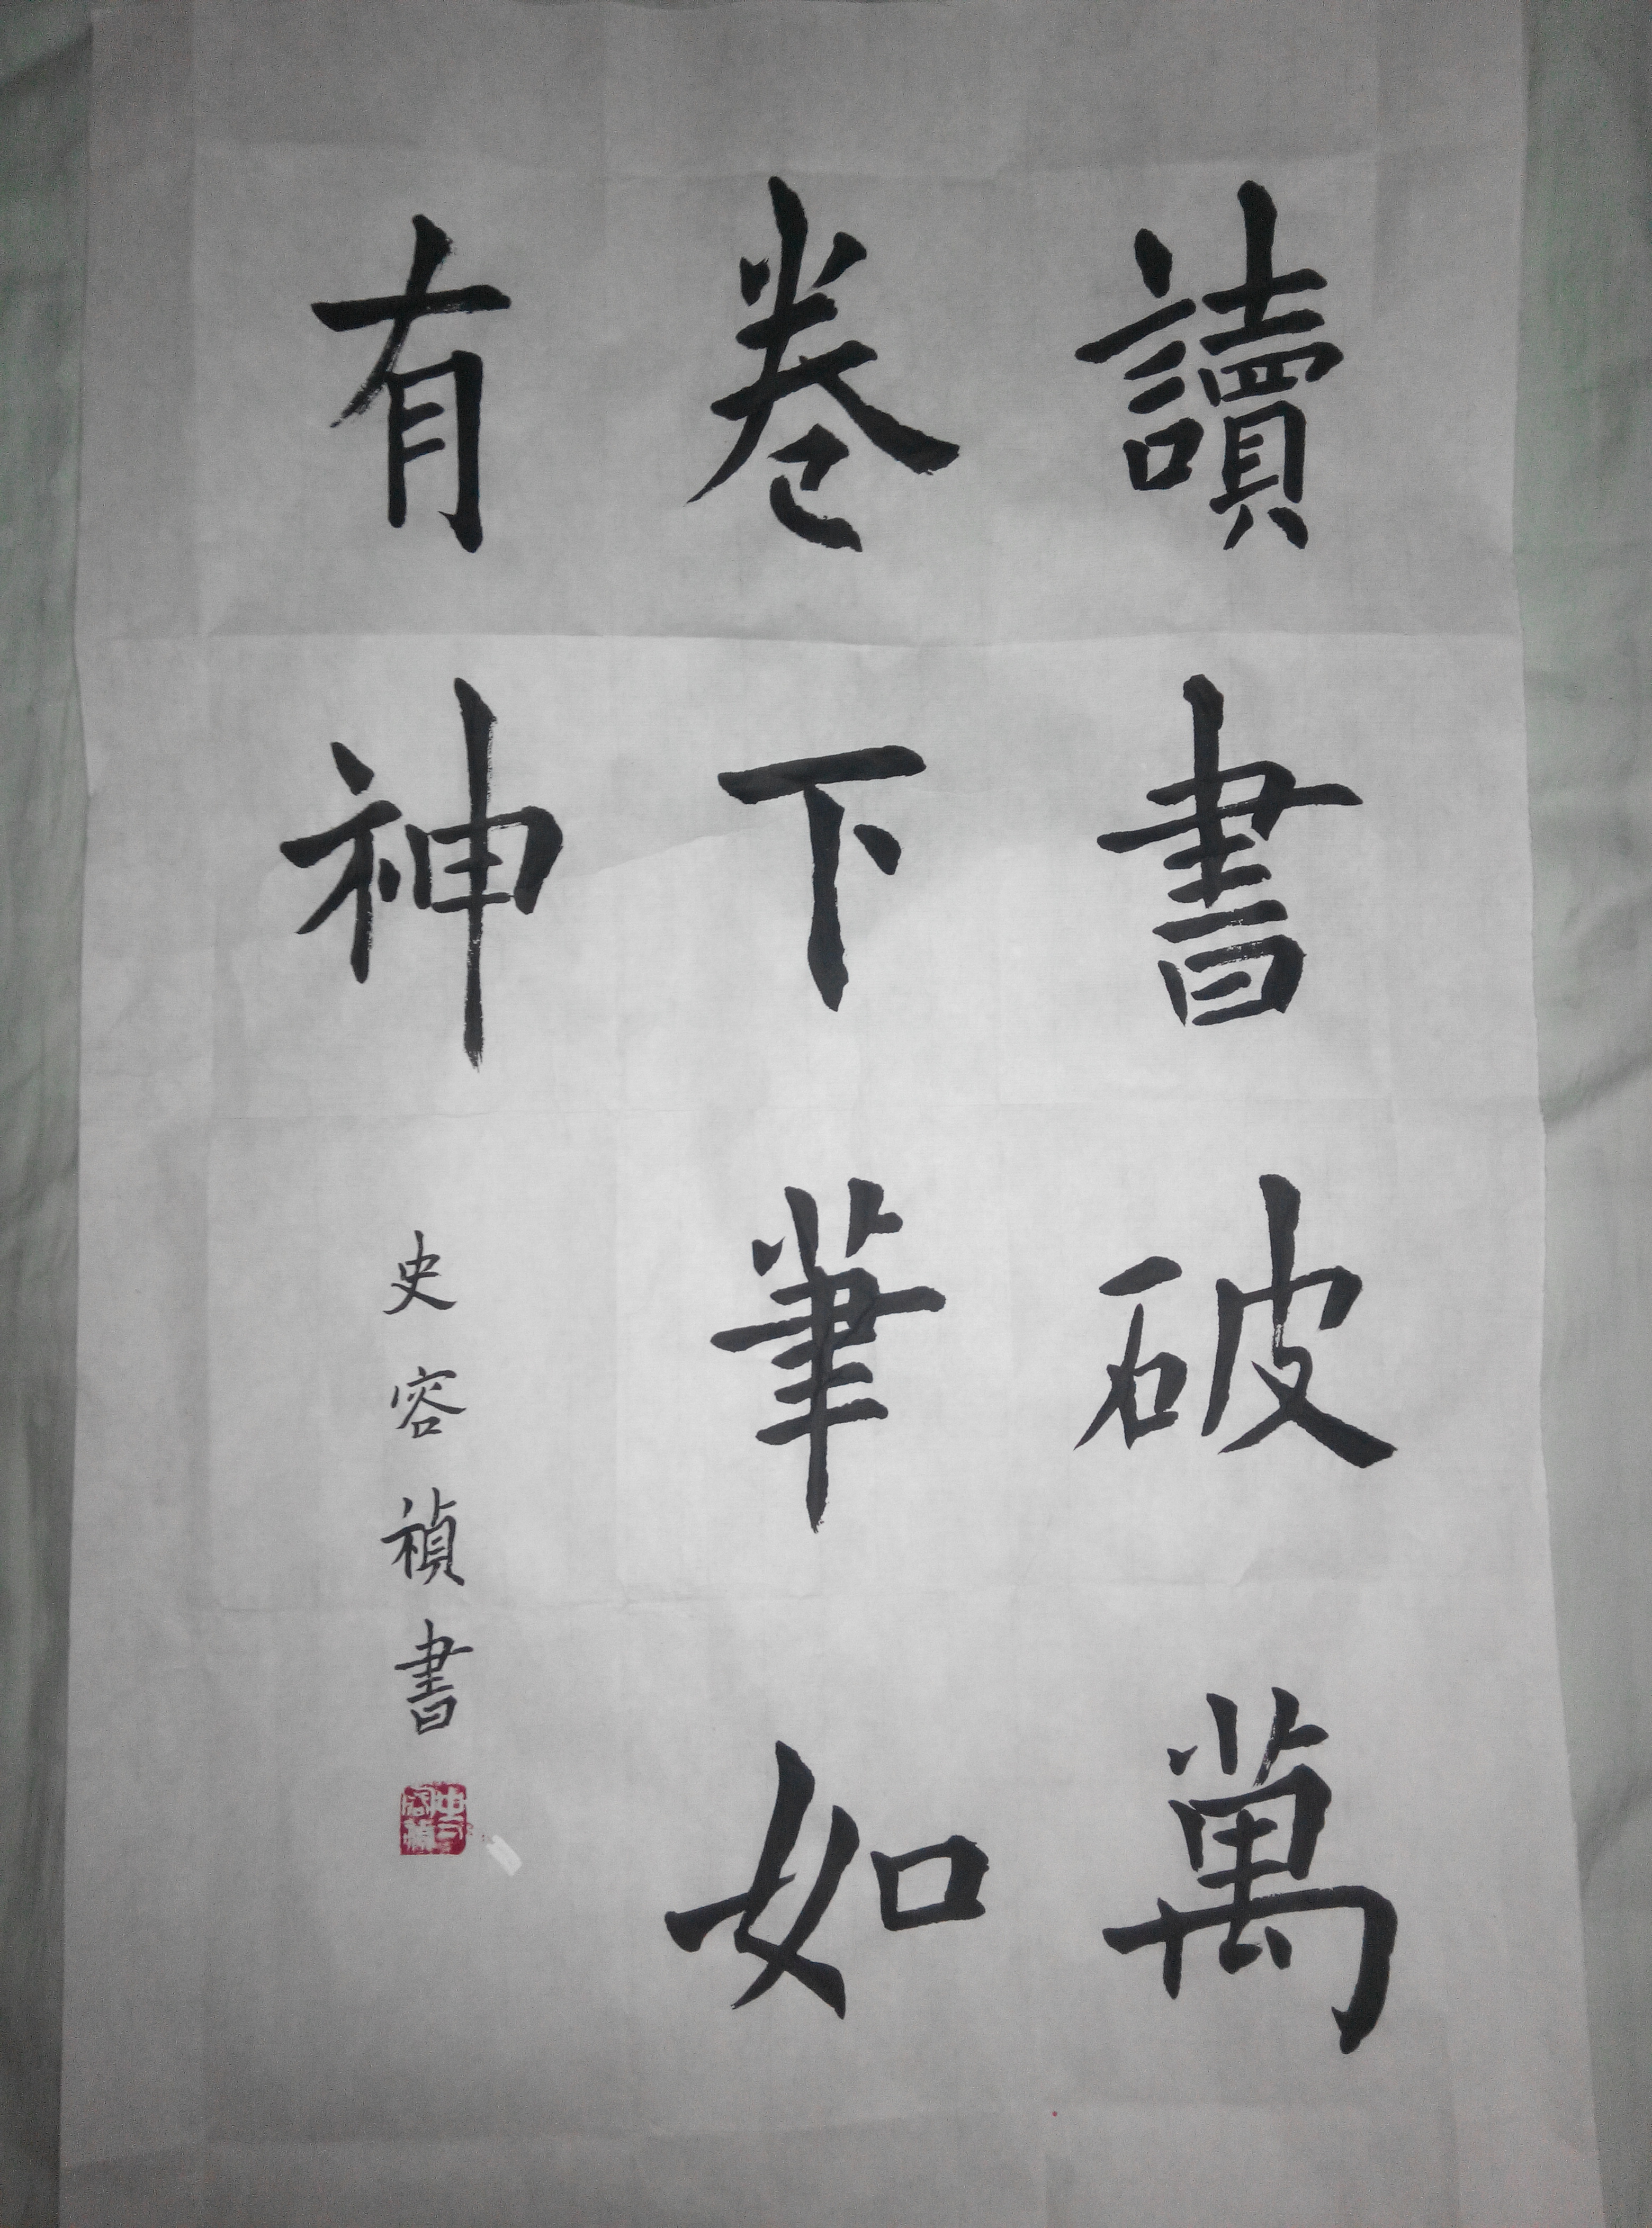 讀書破萬
卷下筆如
有神
史容禎書